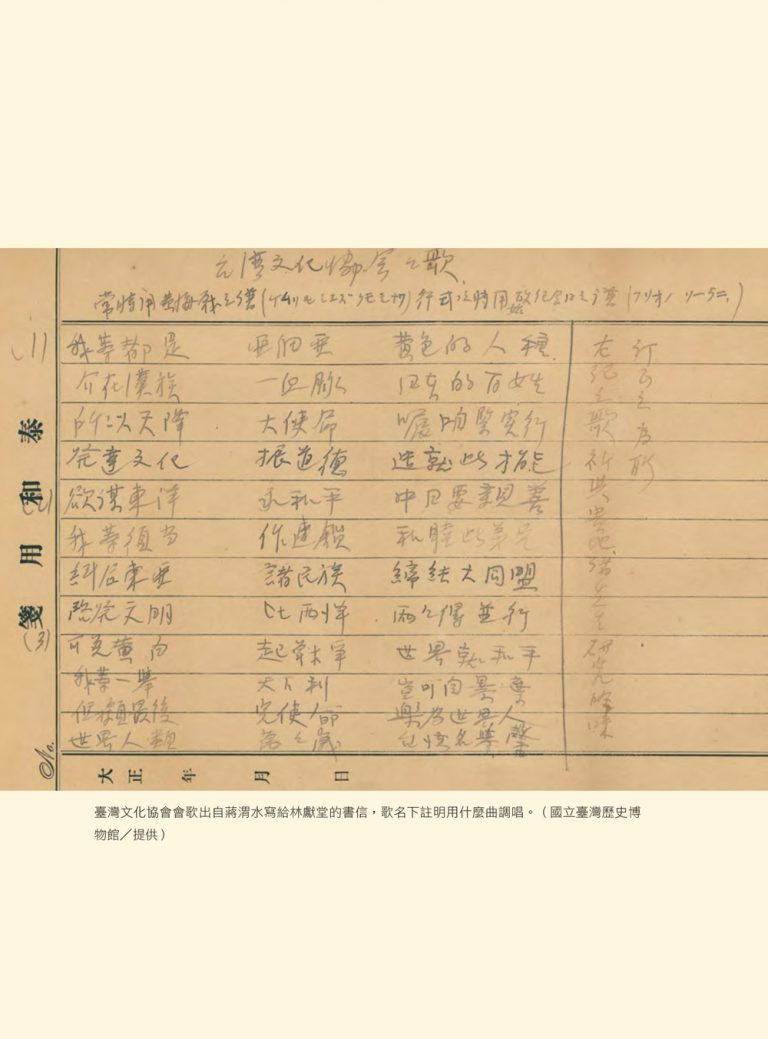 台湾文化協会之歌
(1) 我等都是 亜細亜 黄色的人種
介在漢族 一血脉 日本的百姓
所以天降 大使命 囑咱緊実行
発達文化 振道德 造就此才能
(2) 欲謀東洋 永和平 中日要親善
我等須当 作連鎖 和睦此弟兄
糾合東亜 諸民族 締結大同盟
啓発文明 比西洋 両々得並行
(3) 可免黄白 起战争 世界就和平
我等一挙 大 利 豈可自暴棄
但願最後 完使命 樂為世界人
世界人類 万々歲 台湾名譽馨
右記之歌祈 諸先生研究
泰和用箋
No.
大正 年 月 日
臺灣文化協會會歌出自蔣渭水寫給林獻堂的書信，歌名下註明用什麼曲調唱。（國立臺灣歷史博
物館／提供）